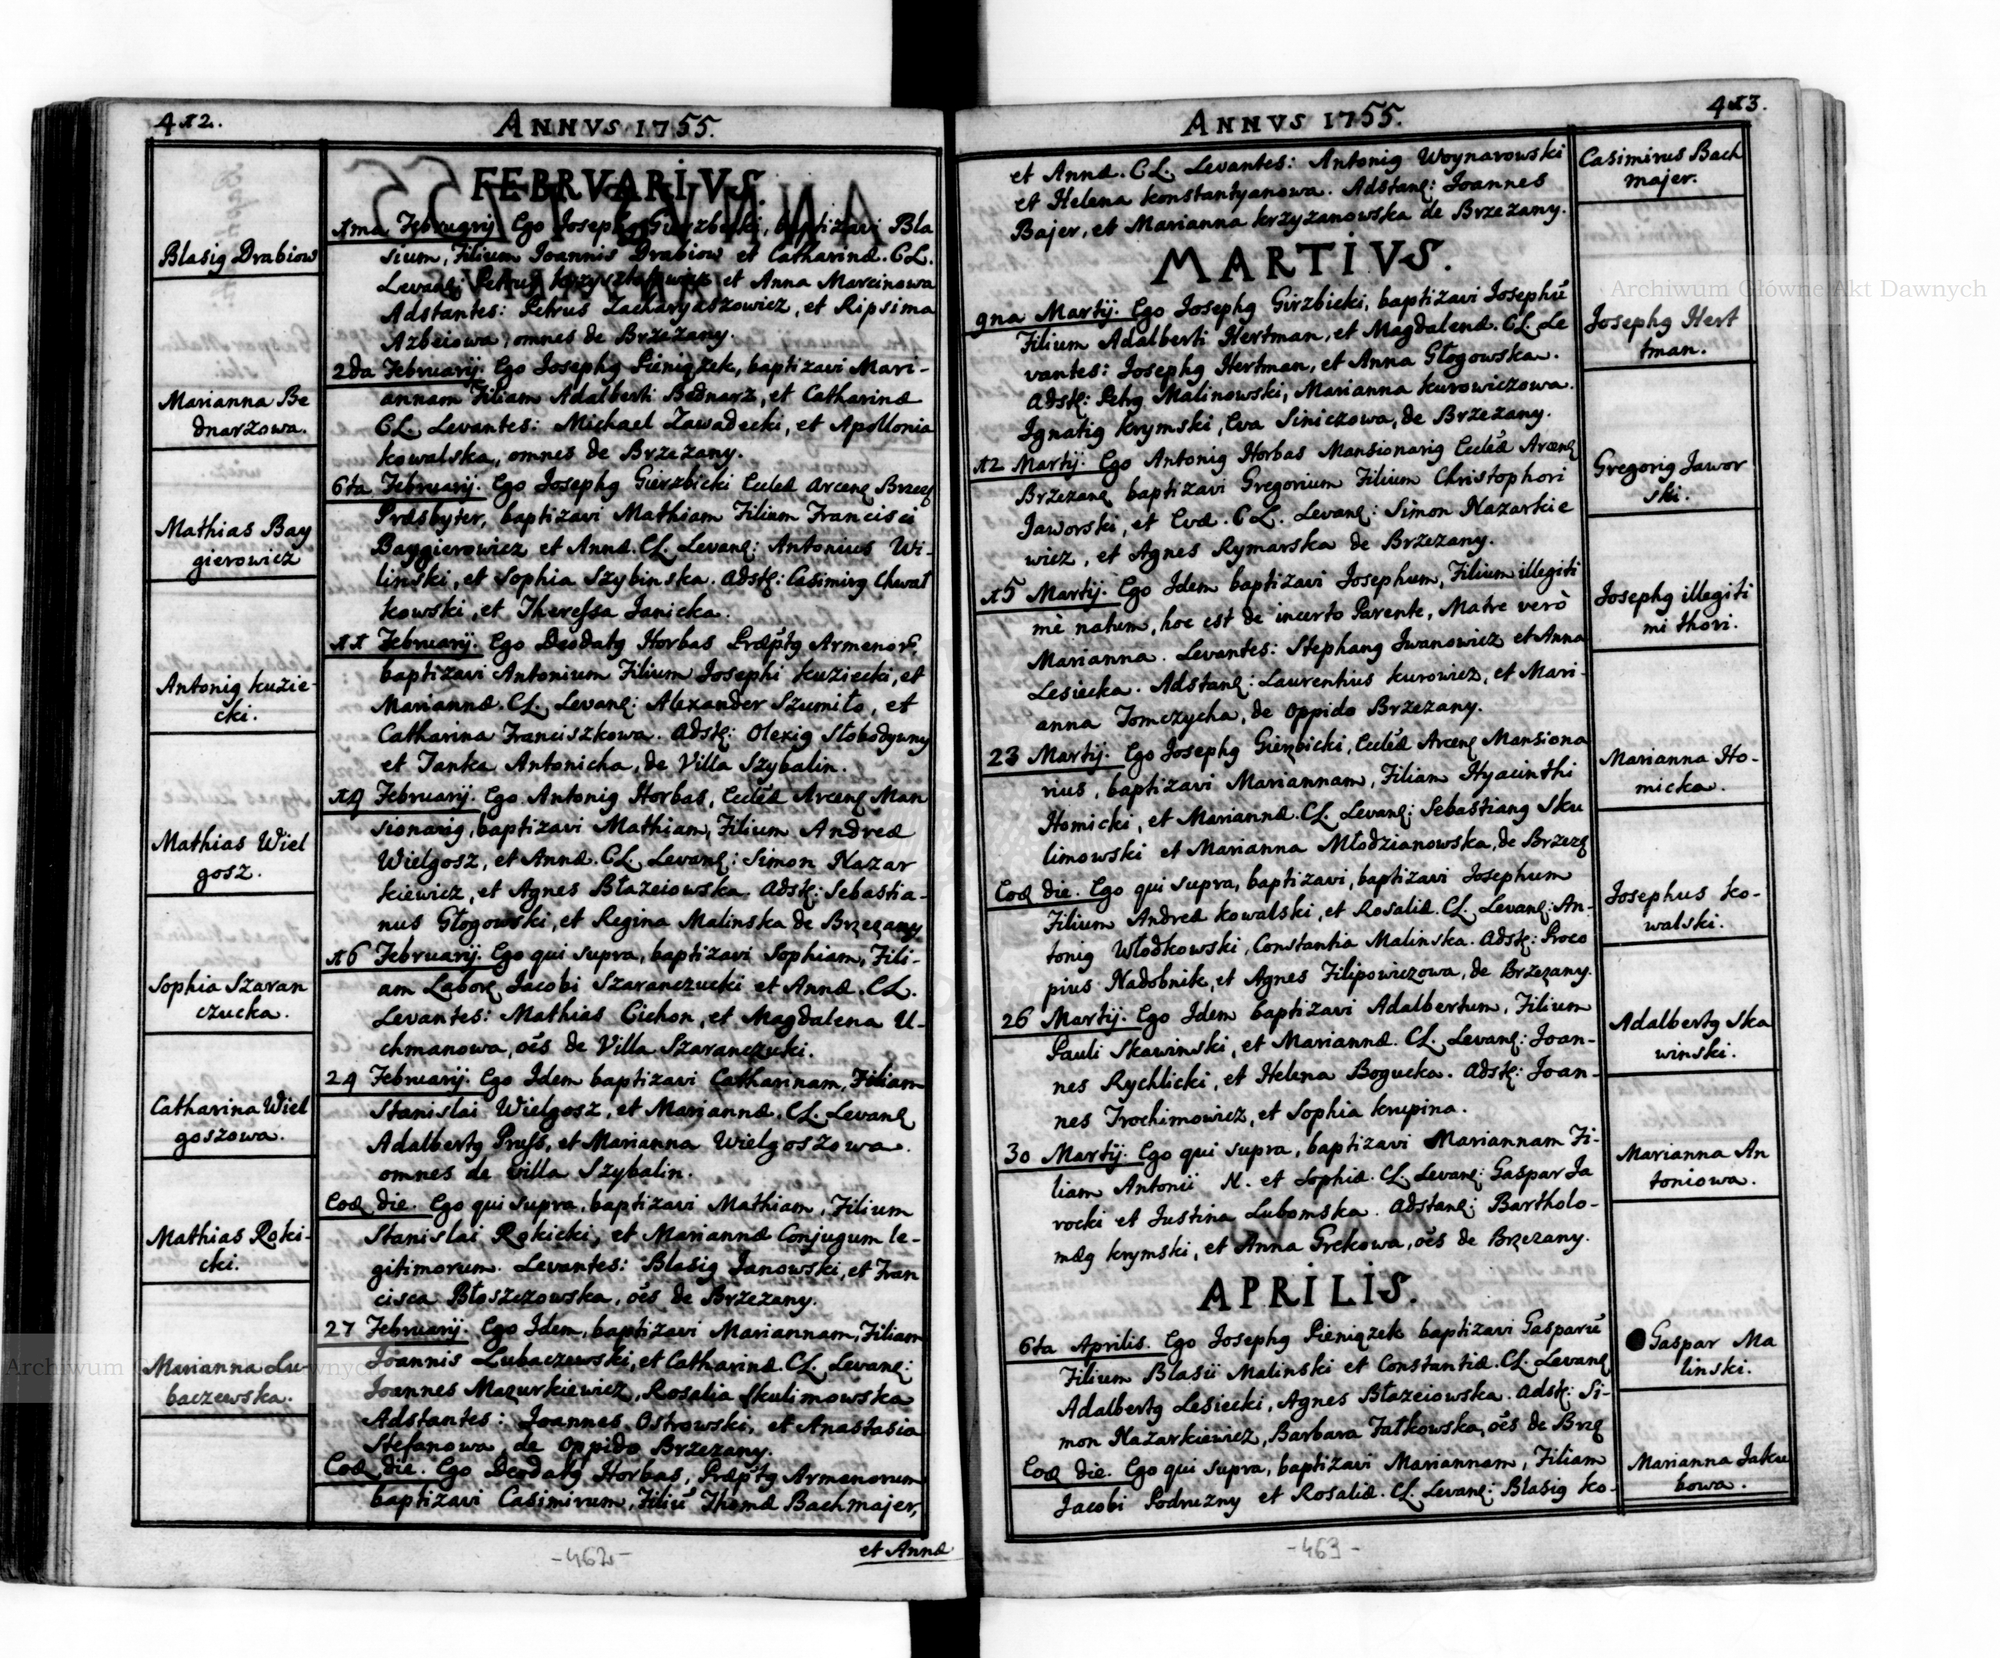 412.
ANNVS 1755.
FEBRVARIVS.
Blasig Drabiow
1ma Februarij. Ego Josephg Girzbicki, baptizavi Bla
sium, Filium Joannis Drabiow et Catharinæ. CL.
Levanę: Petrus Krzysztofowicz et Anna Marcinowa
Adstantes: Petrus Zacharyaszowicz, et Ripsima
Azbeiowa, omnes de Brzezany.
Marianna Be
dnarzowa.
2da Februarij. Ego Josephg Pieniążek, baptizavi Mari-
annam Filiam Adalberti Bednarz, et Catharinæ
CL. Levantes: Michael Zawadecki, et Apollonia
Kowalska, omnes de Brzezany.
Mathias Bay
gierowicz
6ta Februarij. Ego Josephg Gierzbicki Eccléæ Arcenę Brzezę
Præsbyter, baptizavi Mathiam Filium Francisci
Baygierowicz et Annæ. CL. Levanę: Antonius Wi-
linski, et Sophia Szybinska. Adstę: Casimirg Chwat
kowski, et Theressa Janicka.
Antonig Kuzie-
cki.
11 Februarij. Ego Deodatg Horbas Præptg Armenor
baptizavi Antonium Filium Josephi Kuziecki, et
Mariannæ. CL. Levanę: Alexander Szumiło, et
Catharina Franciszkowa. Adstę: Olexig Słobodyuny
et Tanka Antonicha, de Villa Szybalin.
Mathias Wiel
gosz.
14 Februarij. Ego Antonig Horbas, Eccléæ Arcenę Man
sionarig, baptizavi Mathiam, Filium Andreæ
Wielgosz, et Annæ. CL. Levanę: Simon Nazar
kiewicz, et Agnes Błazeiowska. Adstę: Sebastia-
nus Głogowski, et Regina Malinska de Brzezany
Sophia Szaran
czucka.
16 Februarij. Ego qui supra, baptizavi Sophiam, Fili-
am Laborę Jacobi Szaranczucki et Annæ. CL.
Levantes: Mathias Cichon, et Magdalena U-
chmanowa, oés de Villa Szaranczuki.
Catharina Wiel
goszowa.
24 Februarij. Ego Idem baptizavi Catharinam, Filiam
Stanislai Wielgosz, et Mariannæ. CL. Levanę
Adalbertg Pruss, et Marianna Wielgoszowa.
omnes de Villa Szybalin.
Mathias Roki-
cki.
Eoę die. Ego qui supra, baptizavi Mathiam, Filium
Stanislai Rokicki, et Mariannæ Conjugum le-
gitimorum. Levantes: Blasig Janowski, et Fran
cisca Błoszczowska, oés de Brzezany.
Marianna Lu-
baczewska.
27 Februarij. Ego Idem, baptizavi Mariannam, Filiam
Joannis Lubaczewski, et Catharinæ. CL. Levanę:
Joannes Mazurkiewicz, Rosalia Skulimowska
Adstantes: Joannes Ostrowski, et Anastasia
Stefanowa, de Oppido Brzezany.
Eoę die. Ego Deodatg Horbas, Præptg Armenorum
baptizavi Casimirum, Filiū Thomæ Bachmajer,
et Annæ
-462-
413.
ANNVS 1755.
Casimirus Bach
majer.
et Annæ. CL. Levantes: Antonig Woynarowski
et Helena Konstantyanowa. Adstanę: Joannes
Bajer, et Marianna Krzyzanowska de Brzezany.
MARTIVS.
Josephg Hert
tman.
9na Martij. Ego Josephg Girzbicki, baptizavi Josephū
Filium Adalberti Hertman, et Magdalenæ. CL. Le
vantes: Josephg Hertman, et Anna Głogowska.
Adstę: Petrg Malinowski, Marianna Kurowiczowa.
Ignatig Krymski, Eva Siniczowa, de Brzezany.
Gregorig Jawor
ski.
12 Martij. Ego Antonig Horbas Mansionarig Eccléæ Arcenę
Brzezanę baptizavi Gregorium Filium Christophori
Jaworski, et Evæ. CL. Levanę: Simon Nazarkie
wicz, et Agnes Rymarska de Brzezany.
Josephg illegiti
mi thori.
15 Martij. Ego Idem baptizavi Josephum, Filium illegiti
mè natum, hoc est de incerto Parente, Matre verò
Marianna. Levantes: Stephang Iwanowicz et Anna
Lesiecka. Adstanę: Laurentius Kurowicz, et Mari-
anna Tomczycha, de Oppido Brzezany.
Marianna Ho-
micka.
23 Martij. Ego Josephg Gierzbicki, Eccléæ Arcenę Mansiona
rius, baptizavi Mariannam, Filiam Hyacinthi
Homicki, et Mariannæ. CL. Levanę: Sebastiang Sku
limowski et Marianna Młodzianowska, de Brzezę
Josephus Ko-
walski.
Eoę die. Ego qui supra, baptizavi, baptizavi Josephum
Filium Andreæ Kowalski, et Rosaliæ. CL. Levanę: An-
tonig Włodkowski, Constantia Malinska. Adstę: Proco
pius Nadobnik, et Agnes Filipowiczowa, de Brzezany.
Adalbertg Ska
winski.
26 Martij. Ego Idem baptizavi Adalbertum, Filium
Pauli Skawinski, et Mariannæ. CL. Levanę: Joan-
nes Rychlicki, et Helena Bogucka. Adstę: Joan-
nes Trochimowicz, et Sophia Krupina.
Marianna An
toniowa.
30 Martij. Ego qui supra, baptizavi Mariannam Fi-
liam Antonii N. et Sophiæ. CL. Levanę: Gaspar Ja
rocki et Justina Lubomska. Adstanę: Bartholo-
mæg Krymski, et Anna Grekowa, oés de Brzezany.
APRILIS.
Gaspar Ma
linski.
6ta Aprilis. Ego Josephg Pieniązek baptizavi Gasparū
Filium Blasii Malinski et Constantiæ. CL. Levanę
Adalbertg Lesiecki, Agnes Błazeiowska. Adstę: Si-
mon Nazarkiewicz, Barbara Fatkowska, oés de Brzę
Marianna Jaku
bowa.
Eoę die. Ego qui supra, baptizavi Mariannam, Filiam
Jacobi Podruzny et Rosaliæ. CL. Levanę: Blasig Ko-
-463-
Archiwum Główne Akt Dawnych
Archiwum Główne Akt Dawnych